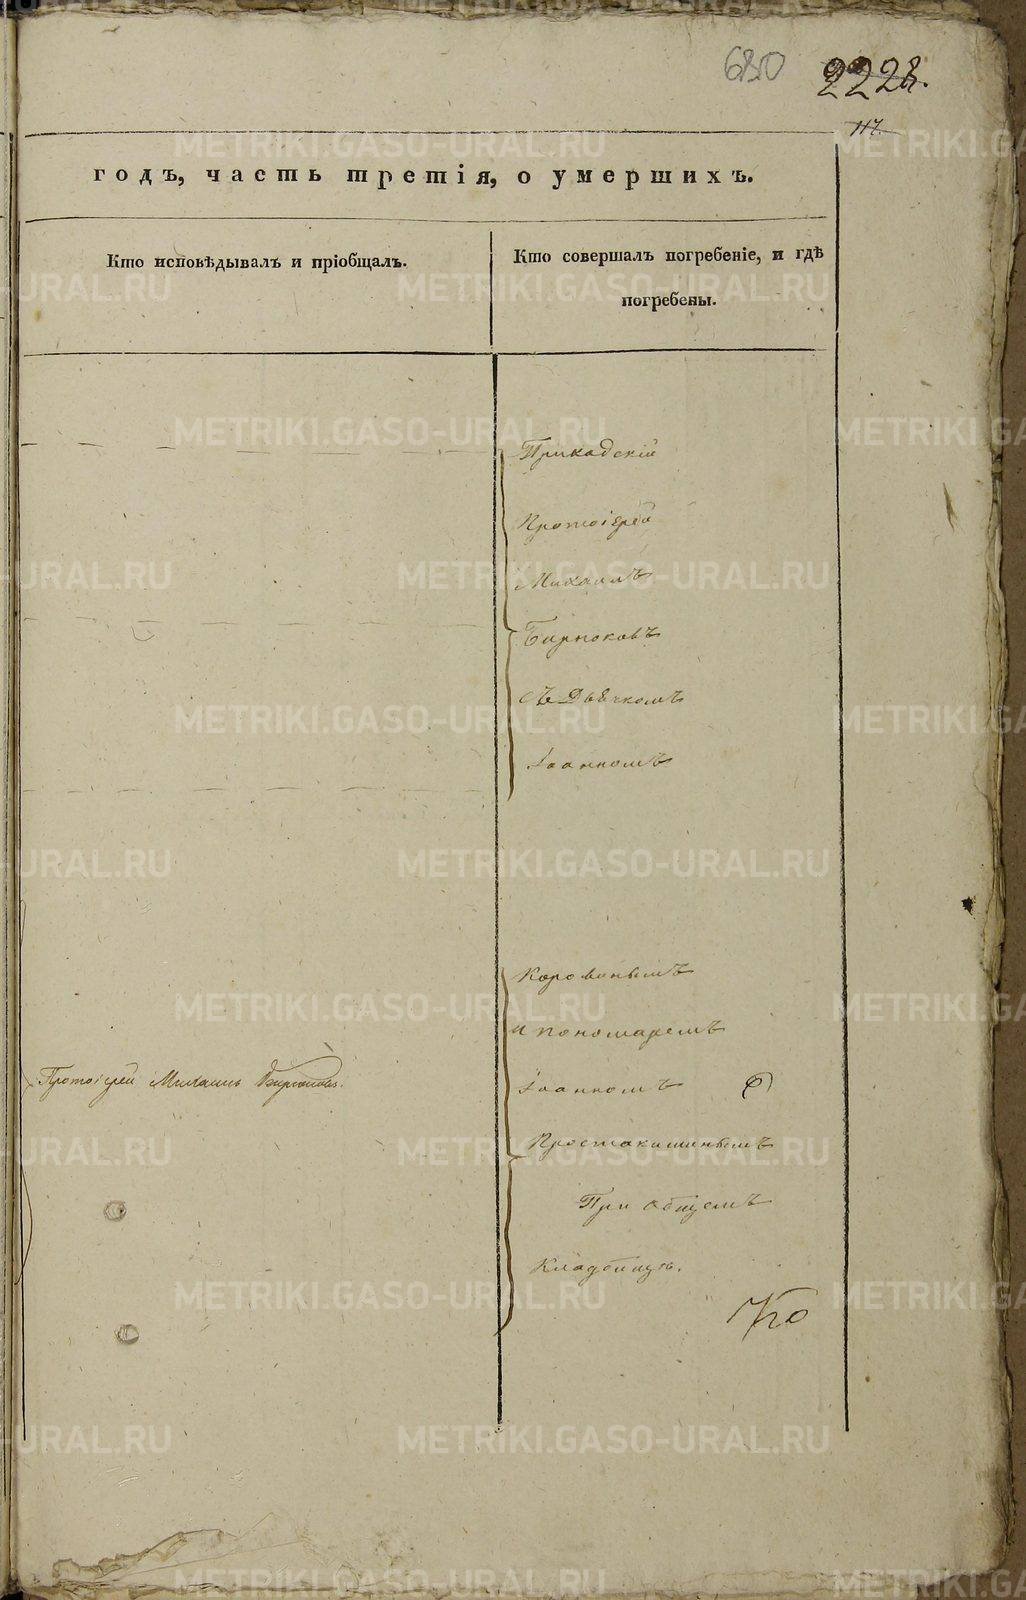 680
2228.
117.
годъ, часть третія, о умершихъ.
Кто исповѣдывалъ и пріобщалъ.
Кто совершалъ погребеніе, и гдѣ
погребены.
Протоіерей
Михаилъ
Бирюковъ
съ Дьячкомъ
Іоанномъ
и пономаремъ
Протоіерей Михаилъ Бирюковъ.
Іоанномъ
Простакишинымъ
При общемъ
Кладбищѣ.
METRIKI.GASO-URAL.RU